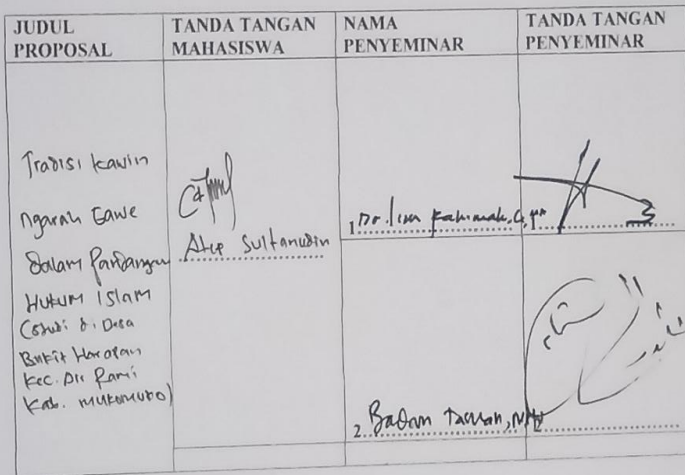 JUDUL PROPOSAL
TANDA TANGAN MAHASISWA
NAMA PENYEMINAR
TANDA TANGAN PENYEMINAR
Tradisi kawin
ngarah Gawe
dalam Pandangan
HUKUM ISLAM
(Studi di Desa
Bukit Harapan
Kec. Air Rami
Kab. MUKOMUKO)
Sultanudin
1. Dr. Iim Fahimah,
2. Badrun Taman,